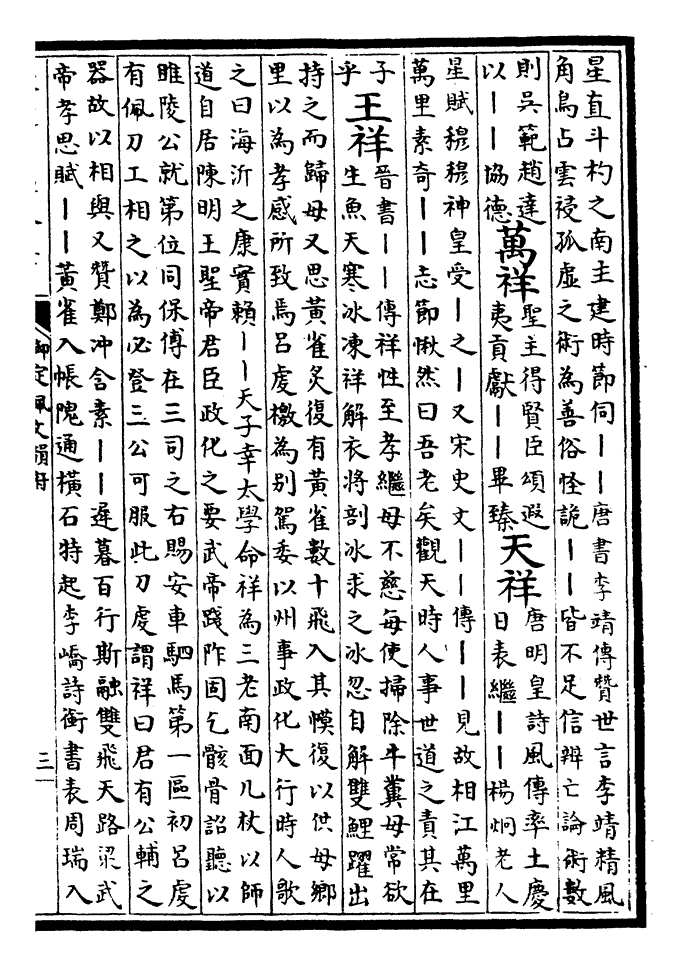 星直斗杓之南主建時節伺丨丨唐書李靖傳贊世言李靖精風
角鳥占雲祲孤虛之術為善俗怪詭丨丨皆不足信辨亡論術數
則吳範趙達
以丨丨協德
萬祥
聖主得賢臣頌遐
夷貢獻丨丨畢臻
天祥
唐明皇詩風傳率土慶
日表繼丨丨楊炯老人
星賦穆穆神皇受丨之丨又宋史文丨丨傳丨丨見故相江萬里
萬里素奇丨丨志節愀然曰吾老矣觀天時人事世道之責其在
子
乎
王祥
晉書丨丨傳祥性至孝繼母不慈每使掃除牛糞母常欲
生魚天寒冰凍祥解衣將剖冰求之冰忽自解雙鯉躍出
持之而歸母又思黃雀炙復有黃雀數十飛入其幙復以供母鄉
里以為孝感所致焉呂虔檄為别駕委以州事政化大行時人歌
之曰海沂之康實賴丨丨天子幸太學命祥為三老南面几杖以師
道自居陳明王聖帝君臣政化之要武帝踐阼固乞骸骨詔聽以
睢陵公就第位同保傅在三司之右賜安車駟馬第一區初呂虔
有佩刀工相之以為必登三公可服此刀虔謂祥曰君有公輔之
器故以相與又贊鄭沖含素丨丨遲暮百行斯融雙飛天路梁武
帝孝思賦丨丨黃雀入帳隗通橫石特起李嶠詩銜書表周瑞入
御定佩文韻府
三